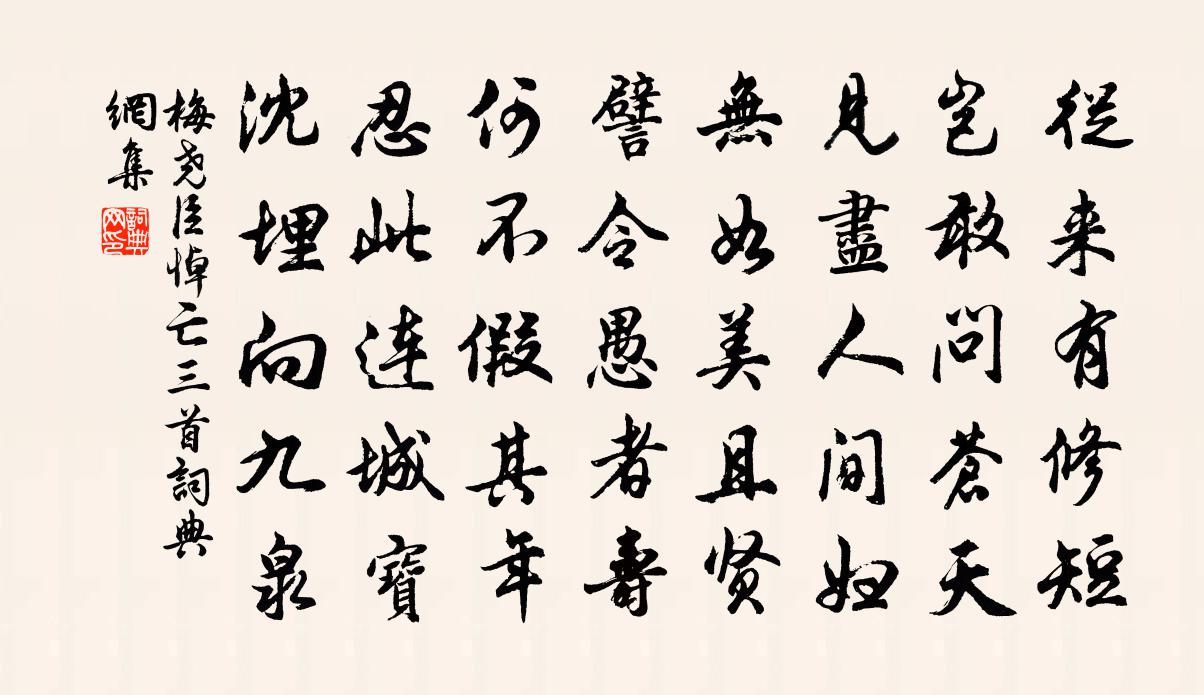 從来有修短
豈敢問蒼天
見盡人間妇
無如美且贤
譬令愚者壽
何不假其年
忍此连城寶
沈埋向九泉
梅尭臣悼亡三首詞典
網集
詞典网印